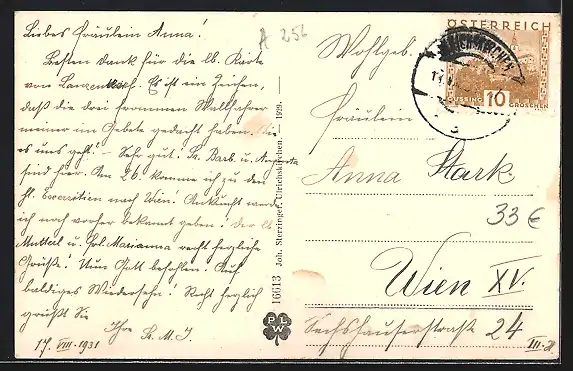 Liebes Fräulein Anna!
Besten Dank für die lb. Karte
von Lanzendorf. Es ist ein Zeichen,
daß die drei frommen Wallfahrer
meiner im Gebete gedacht haben. Wie
es uns geht? – Sehr gut. Sr. Barb. u. Annunta
sind hier. Am 26. komme ich zu den
hl. Exerzitien nach Wien. Ankunft werde
ich noch vorher bekannt geben! Der lb.
Mutterl u. Frl. Marianna recht herzliche
Grüße! Nun Gott befohlen. Auf
baldiges Wiedersehn! Recht herzlich
grüßt Sie
Ihre Sr. M. J.
17. VIII. 1931
A 256
Joh. Sterringer, Ulrichskirchen. — 1929.
16613
P L W
ÖSTERREICH
GÜSSING 10 GROSCHEN
ULRICHSKIRCHEN
Wohlgeb.
Fräulein
Anna Stark
33€
Wien XV.
Sechshauserstraße 24
III-21